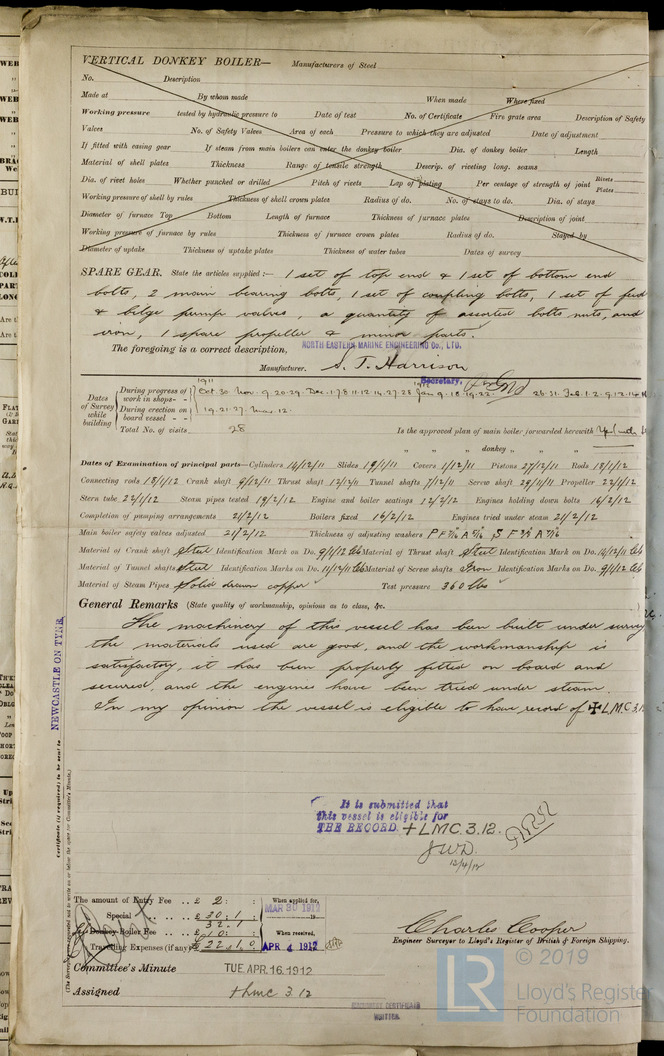 VERTICAL DONKEY BOILER— Manufacturers of Steel
No. Description
Made at By whom made When made Where fixed
Working pressure tested by hydraulic pressure to Date of test No. of Certificate Fire grate area Description of Safety
Valves No. of Safety Valves Area of each Pressure to which they are adjusted Date of adjustment
If fitted with easing gear If steam from main boilers can enter the donkey boiler Dia. of donkey boiler Length
Material of shell plates Thickness Range of tensile strength Descrip. of riveting long. seams
Dia. of rivet holes Whether punched or drilled Pitch of rivets Lap of plating Per centage of strength of joint Rivets Plates
Working pressure of shell by rules Thickness of shell crown plates Radius of do. No. of stays to do. Dia. of stays
Diameter of furnace Top Bottom Length of furnace Thickness of furnace plates Description of joint
Working pressure of furnace by rules Thickness of furnace crown plates Radius of do. Stayed by
Diameter of uptake Thickness of uptake plates Thickness of water tubes Dates of survey
SPARE GEAR. State the articles supplied:— 1 set of top end & 1 set of bottom end
bolts, 2 main bearing bolts, 1 set of coupling bolts, 1 set of feed
& bilge pump valves, a quantity of assorted bolts nuts, and
iron, 1 spare propeller & minor parts.
The foregoing is a correct description,
NORTH EASTERN MARINE ENGINEERING Co., LTD.
Manufacturer. S. T. Harrison
Secretary.
Dates of Survey while building
During progress of work in shops - - 1911 Oct. 30. Nov. 9. 20. 29. Dec. 1. 7. 8. 11. 12. 14. 27. 28 Jan 9. 18. 19. 22. 26. 31. Feb. 1. 2. 9. 13. 14
During erection on board vessel - - 19. 21. 27. Mar. 12.
Total No. of visits 28
Is the approved plan of main boiler forwarded herewith
" " " donkey " "
Dates of Examination of principal parts—Cylinders 14/12/11 Slides 19/1/11 Covers 1/12/11 Pistons 27/12/11 Rods 18/1/12
Connecting rods 18/1/12 Crank shaft 9/12/11 Thrust shaft 12/12/11 Tunnel shafts 7/12/11 Screw shaft 29/11/11 Propeller 22/1/12
Stern tube 22/1/12 Steam pipes tested 19/2/12 Engine and boiler seatings 12/2/12 Engines holding down bolts 16/2/12
Completion of pumping arrangements 21/2/12 Boilers fixed 16/2/12 Engines tried under steam 21/2/12
Main boiler safety valves adjusted 21/2/12 Thickness of adjusting washers
Material of Crank shaft Steel Identification Mark on Do. 9/1/12 Material of Thrust shaft Steel Identification Mark on Do. 14/12/11
Material of Tunnel shafts Steel Identification Marks on Do. 11/12/11 Material of Screw shafts Iron Identification Marks on Do. 9/1/12
Material of Steam Pipes Solid drawn copper Test pressure 360 lbs
General Remarks (State quality of workmanship, opinions as to class, &c.
The machinery of this vessel has been built under survey
the materials used are good, and the workmanship is
satisfactory, it has been properly fitted on board and
secured, and the engines have been tried under steam.
In my opinion the vessel is eligible to have record of ✠ L.M.C 3.12
NEWCASTLE ON TYNE
Certificate (if required) to be sent to
It is submitted that
this vessel is eligible for
THE RECORD. + LMC. 3. 12.
J.W.D.
12/4/12
The amount of Entry Fee .. £ 2 : When applied for,
Special .. .. £ 30 : 1 : MAR 30 1912
32.1
Donkey Boiler Fee .. £ 10 : : When received,
Travelling Expenses (if any) £ 22 : 1 : 0 APR 4 1912
Charles Cooper
Engineer Surveyor to Lloyd's Register of British & Foreign Shipping.
Committee's Minute TUE. APR. 16. 1912
Assigned + Lmc 3. 12
MACHINERY CERTIFICATE
WRITTEN.
© 2019
LR
Lloyd's Register
Foundation